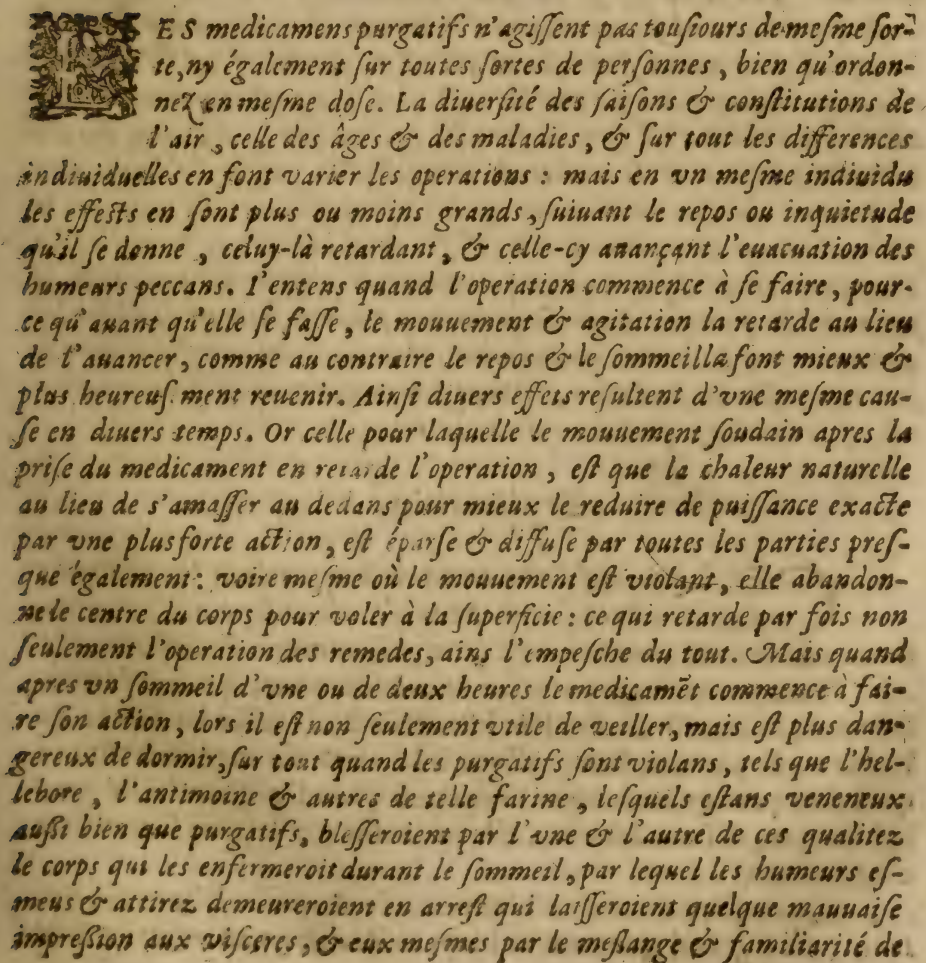 LES medicamens purgatifs n'agissent pas tousiours de mesme sor-
te, ny également sur toutes sortes de personnes, bien qu'ordon-
nez en mesme dose. La diuersité des saisons & constitutions de
l'air, celle des âges & des maladies, & sur tout les differences
indiuiduelles en font varier les operations : mais en vn mesme indiuidu
les effects en sont plus ou moins grands, suiuant le repos ou inquietude
qu'il se donne, celuy-là retardant, & celle-cy auançant l'euacuation des
humeurs peccans. I'entens quand l'operation commence à se faire, pour-
ce qu'auant qu'elle se fasse, le mouuement & agitation la retarde au lieu
de l'auancer, comme au contraire le repos & le sommeil la font mieux &
plus heureusment reuenir. Ainsi diuers effets resultent d'vne mesme cau-
se en diuers temps. Or celle pour laquelle le mouuement soudain apres la
prise du medicament en retarde l'operation, est que la chaleur naturelle
au lieu de s'amasser au dedans pour mieux le reduire de puissance exacte
par vne plus forte action, est éparse & diffuse par toutes les parties pres-
que également : voire mesme où le mouuement est violant, elle abandon-
ne le centre du corps pour voler à la superficie : ce qui retarde par fois non
seulement l'operation des remedes, ains l'empesche du tout. Mais quand
apres vn sommeil d'vne ou de deux heures le medicamēt commence à fai-
re son action, lors il est non seulement vtile de veiller, mais est plus dan-
gereux de dormir, sur tout quand les purgatifs sont violans, tels que l'hel-
lebore, l'antimoine & autres de telle farine, lesquels estans veneneux
aussi bien que purgatifs, blesseroient par l'vne & l'autre de ces qualitez
le corps qui les enfermeroit durant le sommeil, par lequel les humeurs es-
meus & attirez demeureroient en arrest qui laisseroient quelque mauuaise
impression aux visceres, & eux mesmes par le meslange & familiarité de